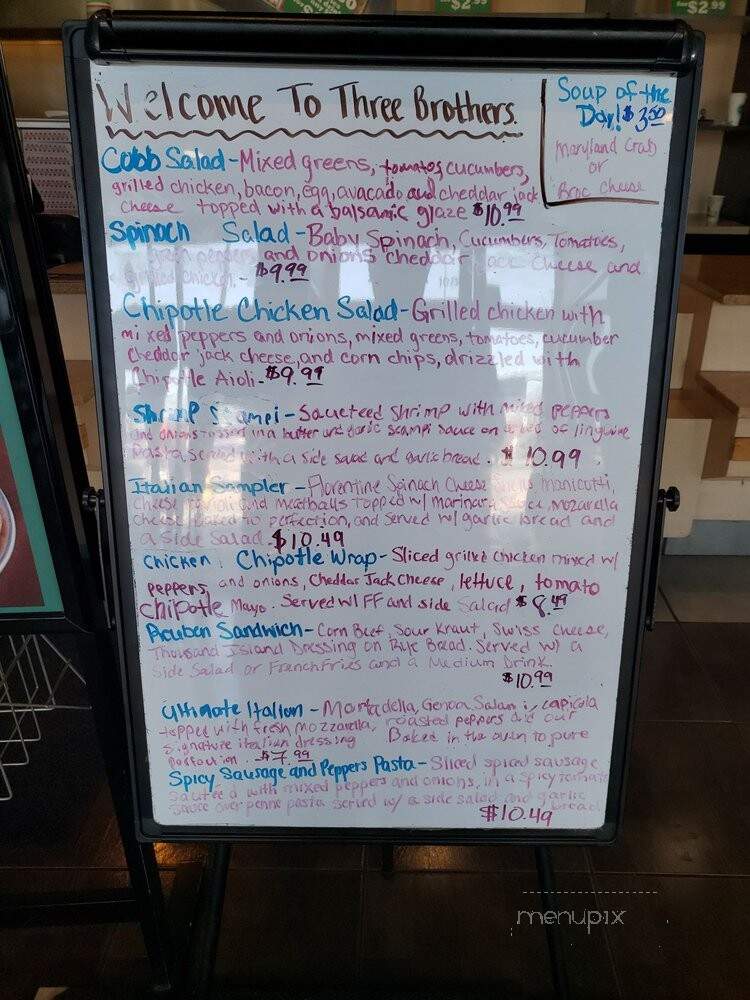 Welcome To Three Brothers.
Soup of the
Day! $3.50
Maryland Crab
or
Broc Cheese
Cobb Salad - Mixed greens, tomatos, cucumbers,
grilled chicken, bacon, egg, avacado and cheddar jack
cheese topped with a balsamic glaze $10.99
Spinach Salad - Baby Spinach, Cucumbers, Tomatoes,
and onions cheddar Jack cheese and
grilled chicken. - $9.99
Chipotle Chicken Salad - Grilled chicken with
mixed peppers and onions, mixed greens, tomatoes, cucumber
cheddar jack cheese, and corn chips, drizzled with
Chipotle Aioli - $9.99
Shrimp Scampi - Sauteed Shrimp with mixed peppers
and onions tossed in a butter and garlic scampi sauce on a bed of linguine
pasta, served with a side salad and garlic bread. $10.99
Italian Sampler - Florentine Spinach Cheese Shells, manicotti,
cheese ravioli and meatballs topped w/ marinara sauce, mozarella
cheese baked to perfection, and served w/ garlic bread and
a side Salad. $10.49
Chicken Chipotle Wrap - Sliced grilled chicken mixed w/
peppers, and onions, Cheddar Jack Cheese, lettuce, tomato
chipotle Mayo. Served w/ FF and side Salad $8.49
Reuben Sandwich - Corn Beef, Sour Kraut, Swiss Cheese,
Thousand Island Dressing on Rye Bread. Served w/ a
Side Salad or French Fries and a Medium Drink
$10.99
Ultimate Italian - Mortadella, Genoa Salami, capicola
topped with fresh mozzarella, roasted peppers and our
signature italian dressing Baked in the oven to pure
perfection. $7.99
Spicy Sausage and Peppers Pasta - Sliced spiced sausage
sautéed with mixed peppers and onions, in a spicy tomato
sauce over penne pasta served w/ a side salad and garlic
bread
$10.49
menupix